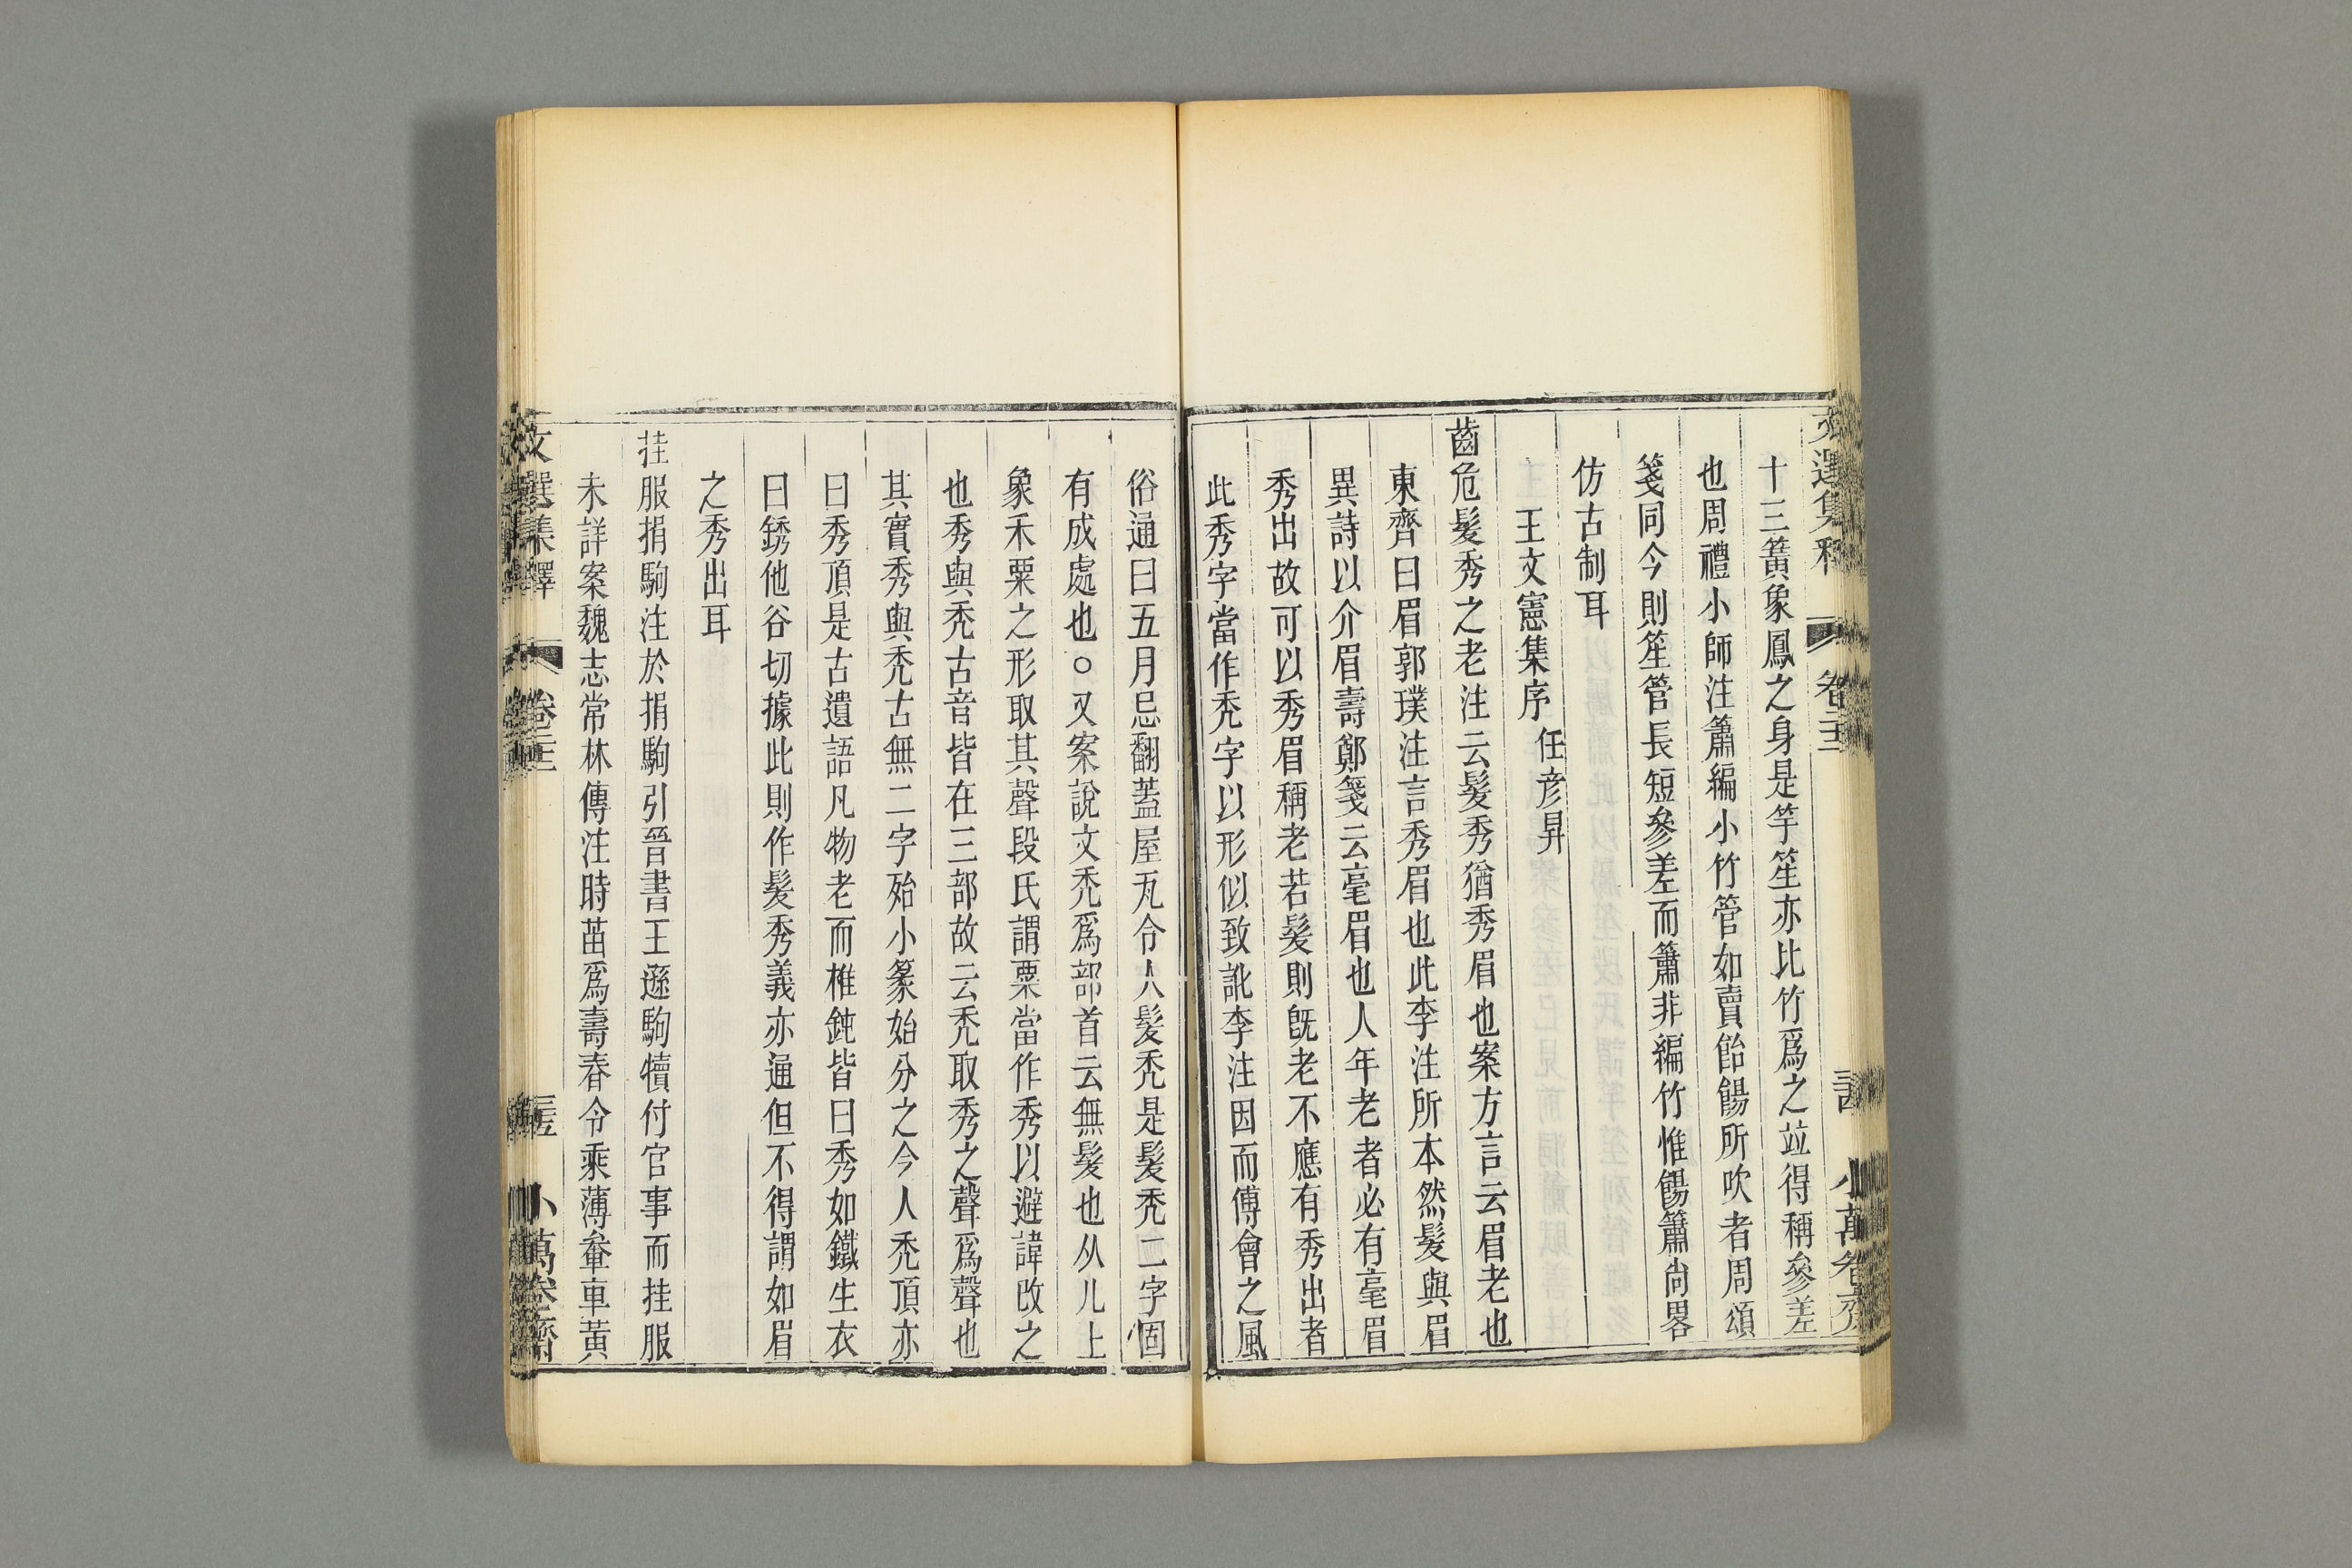 十三簧象鳳之身是竽笙亦比竹爲之竝得稱參差
也周禮小師注簫編小竹管如賣飴餳所吹者周頌
箋同今則笙管長短參差而簫非編竹惟餳簫尙畧
仿古制耳
王文憲集序 任彥昇
齒危髮秀之老注云髮秀猶秀眉也案方言云眉老也
東齊曰眉郭璞注言秀眉也此李注所本然髮與眉
異詩以介眉壽鄭箋云毫眉也人年老者必有毫眉
秀出故可以秀眉稱老若髮則旣老不應有秀出者
此秀字當作禿字以形似致訛李注因而傅會之風
俗通曰五月忌翻蓋屋瓦令人髮禿是髮禿二字固
有成處也○又案說文禿爲部首云無髮也从儿上
象禾粟之形取其聲段氏謂粟當作秀以避諱改之
也秀與禿古音皆在三部故云禿取秀之聲爲聲也
其實秀與禿古無二字殆小篆始分之今人禿頂亦
曰秀頂是古遺語凡物老而椎鈍皆曰秀如鐵生衣
曰銹他谷切據此則作髮秀義亦通但不得謂如眉
之秀出耳
挂服捐駒注於捐駒引晉書王遜駒犢付官事而挂服
未詳案魏志常林傳注時苗爲壽春令乘薄軬車黃
文選集釋 卷二十三 三五 小萬卷齋